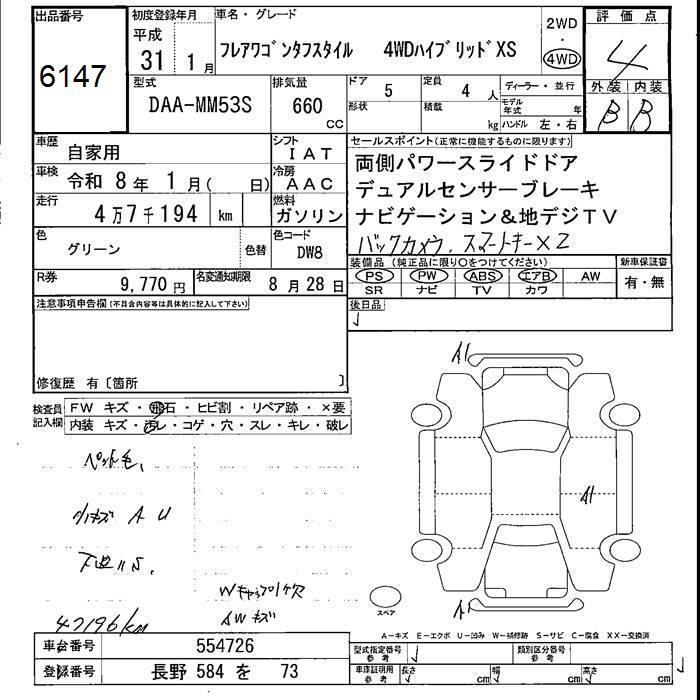 出品番号
6147
初度登録年月
平成
31年 1月
車名・グレード
フレアワゴンタフスタイル 4WDハイブリッドXS
2WD
・
4WD
評価点
4
外装 内装
B B
型式
DAA-MM53S
排気量
660
CC
ドア 5
形状
定員 4人
積載 kg
ディーラー・並行
モデル年式 年
ハンドル 左・右
車歴
自家用
シフト
IAT
車検
令和 8年 1月( 日)
冷房
AAC
走行
4万7千194 km
燃料
ガソリン
色
グリーン
色替
色コード
DW8
R券
9,770円
名変通知期限
8月28日
セールスポイント(正常に機能するものに限ります)
両側パワースライドドア
デュアルセンサーブレーキ
ナビゲーション&地デジTV
バックカメラ、スマートキーX2
装備品(純正品に限り○をつけてください)
PS PW ABS エアB AW
SR ナビ TV カワ
新車保証書
有・無
後日品
注意事項申告欄(不具合内容等は具体的に記入して下さい)
修復歴 有〔箇所 〕
検査員記入欄
FW キズ・飛石・ヒビ割・リペア跡・×要
内装 キズ・汚レ・コゲ・穴・スレ・キレ・破レ
ペット毛、
小キズ A U
下廻りS、
Wキャップ1ケ欠
AWキズ
47196km
A1
A1
A1
スペア
A-キズ E-エクボ U-凹み W-補修跡 S-サビ C-腐食 XX-交換済
車台番号
554726
登録番号
長野 584 を 73
型式指定番号
参考
類別区分番号
参考
車庫証明用
参考
長さ cm 幅 cm 高さ cm